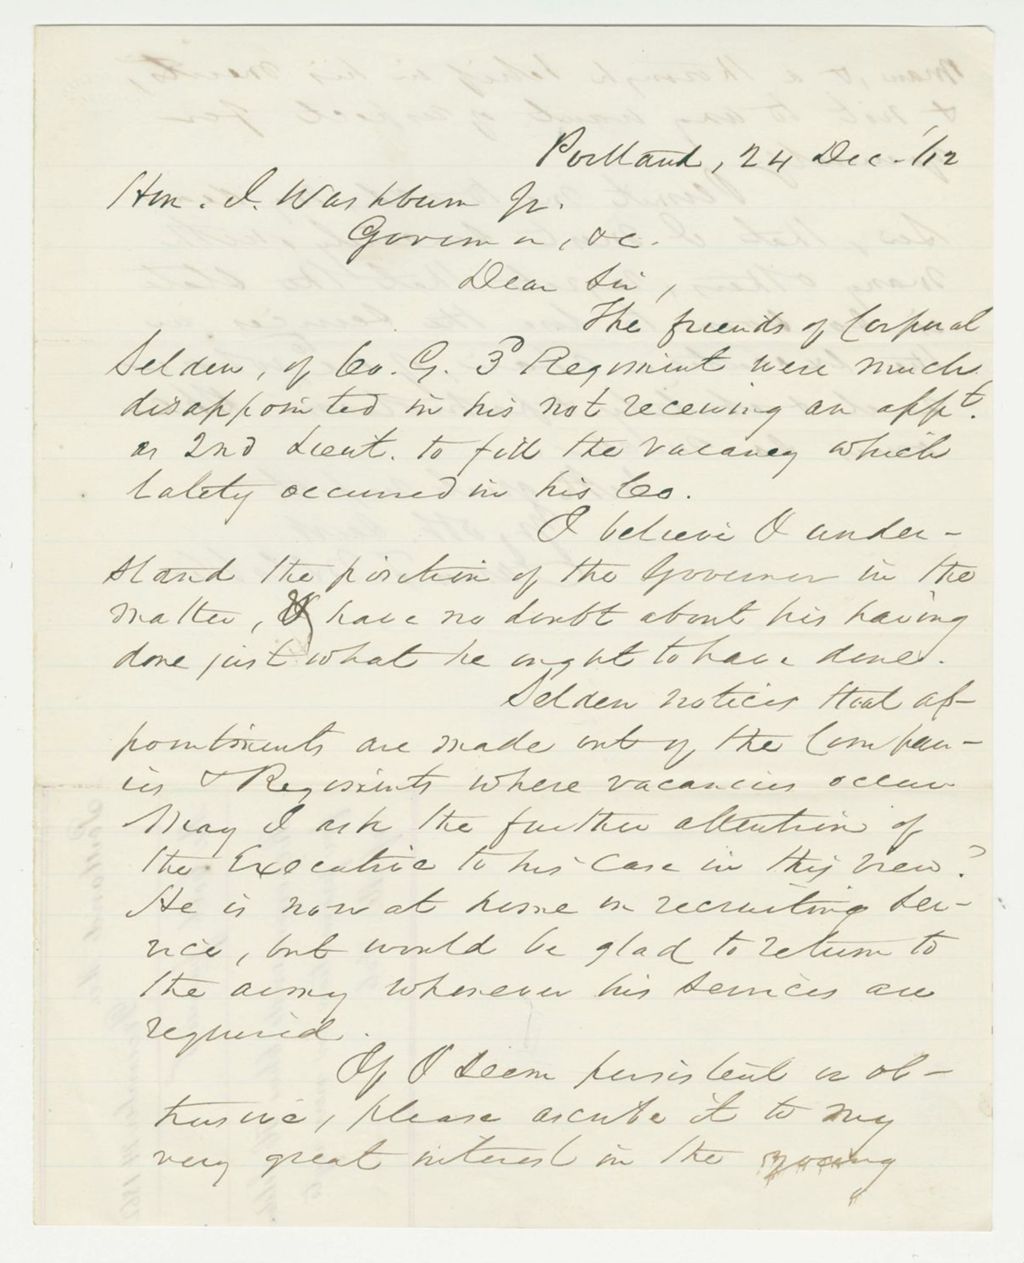 Portland, 24 Dec. /62
Hon. I. Washburn Jr.
Governor, &c.
Dear Sir,
The friends of Corporal
Selden, of Co. G. 3d Regiment were much
disappointed in his not receiving an appt.
as 2nd Lieut. to fill the vacancy which
lately occurred in his Co.
I believe I under-
stand the position of the Governor in the
matter, & have no doubt about his having
done just what he ought to have done.
Selden notices that ap-
pointments are made out of the Compan-
ies & Regiments where vacancies occur
May I ask the further attention of
the Executive to his case in this view?
He is now at home on recruiting ser-
vice, but would be glad to return to
the army whenever his services are
required.
If I seem persistent or ob-
trusive, please ascribe it to my
very great interest in the young